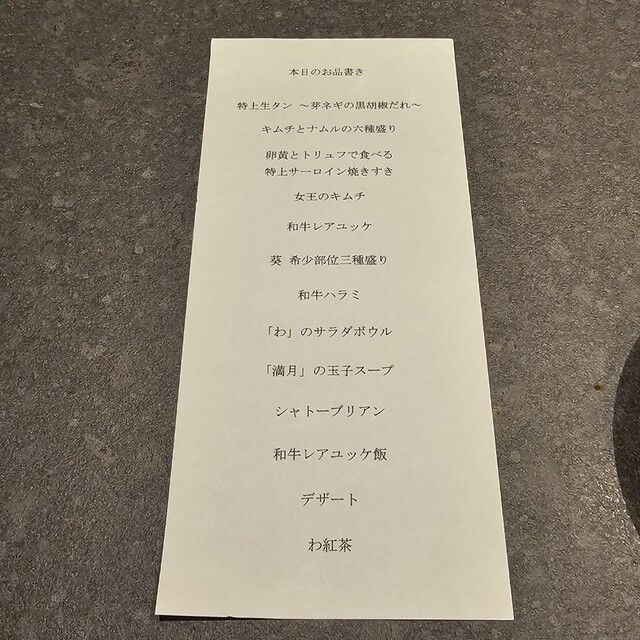 本日のお品書き
特上生タン ～芽ネギの黒胡椒だれ～
キムチとナムルの六種盛り
卵黄とトリュフで食べる
特上サーロイン焼きすき
女王のキムチ
和牛レアユッケ
葵 希少部位三種盛り
和牛ハラミ
「わ」のサラダボウル
「満月」の玉子スープ
シャトーブリアン
和牛レアユッケ飯
デザート
わ紅茶